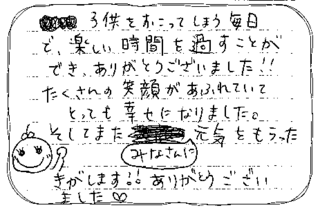 子供をおこってしまう毎日
で、楽しい時間を過すことが
でき、ありがとうございました!!
たくさんの笑顔があふれていて
とっても幸せになりました。
そしてまた みなさんに 元気をもらった
きがします!! ありがとうござい
ました♡